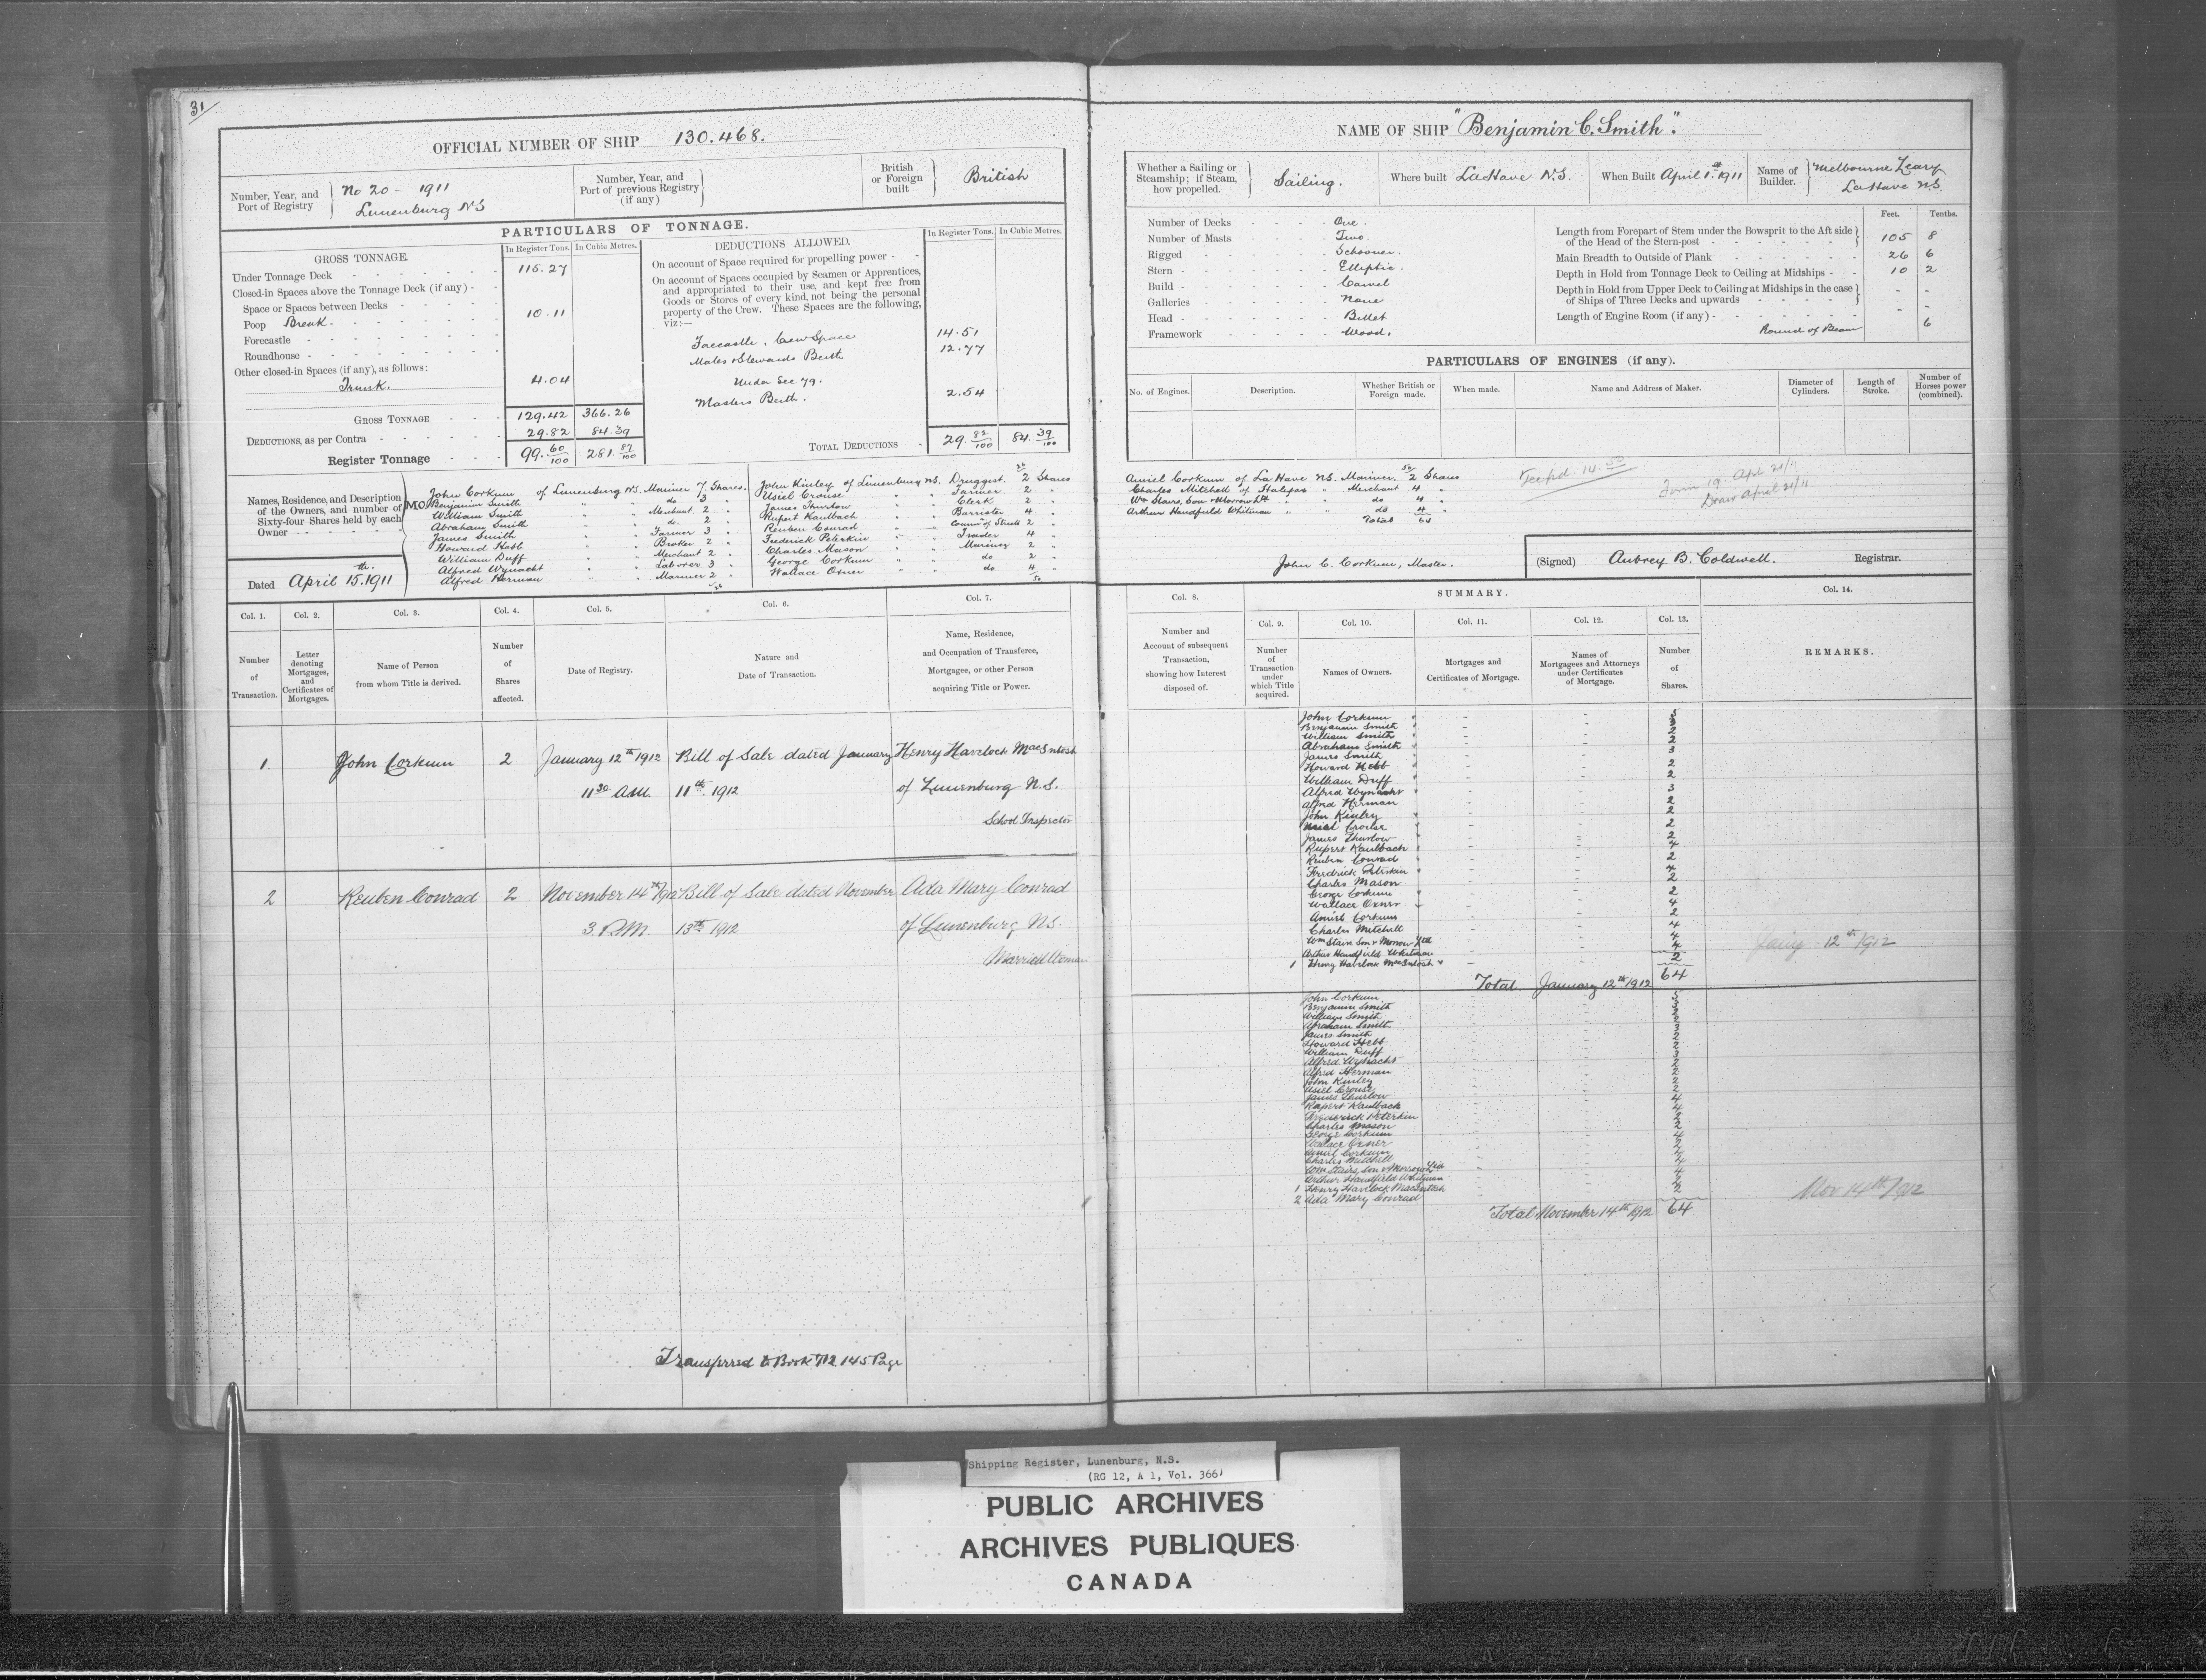 31
OFFICIAL NUMBER OF SHIP 130.468.
Number, Year, and Port of Registry
No 20 - 1911
Lunenburg NS
Number, Year, and Port of previous Registry (if any)
British or Foreign built
British
PARTICULARS OF TONNAGE.
GROSS TONNAGE.
In Register Tons. In Cubic Metres.
Under Tonnage Deck 115.27
Closed-in Spaces above the Tonnage Deck (if any)
Space or Spaces between Decks
Poop Break. 10.11
Forecastle
Roundhouse
Other closed-in Spaces (if any), as follows:
Trunk. 4.04
GROSS TONNAGE 129.42 366.26
DEDUCTIONS, as per Contra 29.82 84.39
Register Tonnage 99. 60/100 281. 87/100
DEDUCTIONS ALLOWED.
In Register Tons. In Cubic Metres.
On account of Space required for propelling power
On account of Spaces occupied by Seamen or Apprentices, and appropriated to their use, and kept free from Goods or Stores of every kind, not being the personal property of the Crew. These Spaces are the following, viz:—
Forecastle, Crew Space 14.51
Mates & Stewards Berth 12.77
Under Sec 79.
Masters Berth. 2.54
TOTAL DEDUCTIONS 29. 82/100 84. 39/100
Names, Residence, and Description of the Owners, and number of Sixty-four Shares held by each Owner
MO
John Corkum of Lunenburg NS. Mariner 7 Shares.
Benjamin Smith " " do 3 "
William Smith " " Merchant 2 "
Abraham Smith " " do. 2 "
James Smith " " Farmer 3 "
Howard Hebb " " Broker 2 "
William Duff " " Merchant 2 "
Alfred Wynacht " " Laborer 3 "
Alfred Herman " " Mariner 2 "
26
26
John Kinley of Lunenburg NS. Druggist. 2 Shares
Usiel Crouse " " Farmer 2 "
James Thurlow " " Clerk 2 "
Rupert Kaulbach " " Barrister 4 "
Reuben Conrad " " Comms of Streets 2 "
Frederick Peterkin " " Trader 4 "
Charles Mason " " Mariner 2 "
George Corkum " " do 2 "
Wallace Oxner " " do 4 "
50
Dated April 15.th 1911
Col. 1. Col. 2. Col. 3. Col. 4. Col. 5. Col. 6. Col. 7.
Number of Transaction.
Letter denoting Mortgages, and Certificates of Mortgages.
Name of Person from whom Title is derived.
Number of Shares affected.
Date of Registry.
Nature and Date of Transaction.
Name, Residence, and Occupation of Transferee, Mortgagee, or other Person acquiring Title or Power.
1. John Corkum 2 January 12th 1912 Bill of Sale dated January Henry Havelock MacIntosh
11 30 A.M. 11th. 1912 of Lunenburg N.S.
School Inspector
2 Reuben Conrad 2 November 14th 1912 Bill of Sale dated November Ada Mary Conrad
3. P.M. 13th 1912 of Lunenburg NS.
Married Woman
Transferred to Book 712 145 Page
NAME OF SHIP "Benjamin C. Smith".
Whether a Sailing or Steamship; if Steam, how propelled.
Sailing.
Where built LaHave N.S.
When Built April 1.st 1911
Name of Builder. Melbourne Leary
LaHave NS.
Number of Decks One.
Number of Masts Two.
Rigged Schooner.
Stern Elliptic.
Build Carvel
Galleries None
Head Billet
Framework Wood.
Feet. Tenths.
Length from Forepart of Stem under the Bowsprit to the Aft side of the Head of the Stern-post 105 8
Main Breadth to Outside of Plank 26 6
Depth in Hold from Tonnage Deck to Ceiling at Midships 10 2
Depth in Hold from Upper Deck to Ceiling at Midships in the case of Ships of Three Decks and upwards - -
Length of Engine Room (if any) - -
Round of Beam 6
PARTICULARS OF ENGINES (if any).
No. of Engines. Description. Whether British or Foreign made. When made. Name and Address of Maker. Diameter of Cylinders. Length of Stroke. Number of Horses power (combined).
50
Amiel Corkum of La Have NS. Mariner. 2 Shares
Charles Mitchell of Halifax " Merchant 4 "
Wm Stairs, Son & Morrow Ltd " " do 4 "
Arthur Handfield Whitman " " do 4 "
Total 64
Form 19. Apl 21/11
April 21/11
John C. Corkum, Master.
(Signed) Aubrey B. Coldwell. Registrar.
Col. 8. SUMMARY. Col. 14.
Col. 9. Col. 10. Col. 11. Col. 12. Col. 13.
Number and Account of subsequent Transaction, showing how Interest disposed of.
Number of Transaction under which Title acquired.
Names of Owners.
Mortgages and Certificates of Mortgage.
Names of Mortgagees and Attorneys under Certificates of Mortgage.
Number of Shares.
REMARKS.
John Corkum 5
Benjamin Smith 3
William Smith 2
Abraham Smith 2
James Smith 3
Howard Hebb 2
William Duff 2
Alfred Wynacht 3
Alfred Herman 2
John Kinley 2
Usiel Crouse 2
James Thurlow 2
Rupert Kaulbach 4
Reuben Conrad 2
Fredrick Peterkin 4
Charles Mason 2
George Corkum 2
Wallace Oxner 4
Amiel Corkum 2
Charles Mitchell 4
Wm Stairs Son & Morrow Ltd 4
Arthur Handfield Whitman 4
1 Henry Havelock MacIntosh 2
Total January 12th 1912 64
12th 1912
John Corkum
Benjamin Smith
William Smith
Abraham Smith
James Smith
Howard Hebb
William Duff
Alfred Wynacht
Alfred Herman
John Kinley
Usiel Crouse
James Thurlow
Rupert Kaulback
Frederick Peterkin
Charles Mason
George Corkum
Wallace Oxner
Amiel Corkum
Charles Mitchell
Wm Stairs, Son & Morrow Ltd
Arthur Handfield Whitman
1 Henry Havelock MacIntosh
2 Ada Mary Conrad
Total November 14th 1912 64
Nov 14th/1912
Shipping Register, Lunenburg, N.S.
(RG 12, A 1, Vol. 366)
PUBLIC ARCHIVES
ARCHIVES PUBLIQUES
CANADA